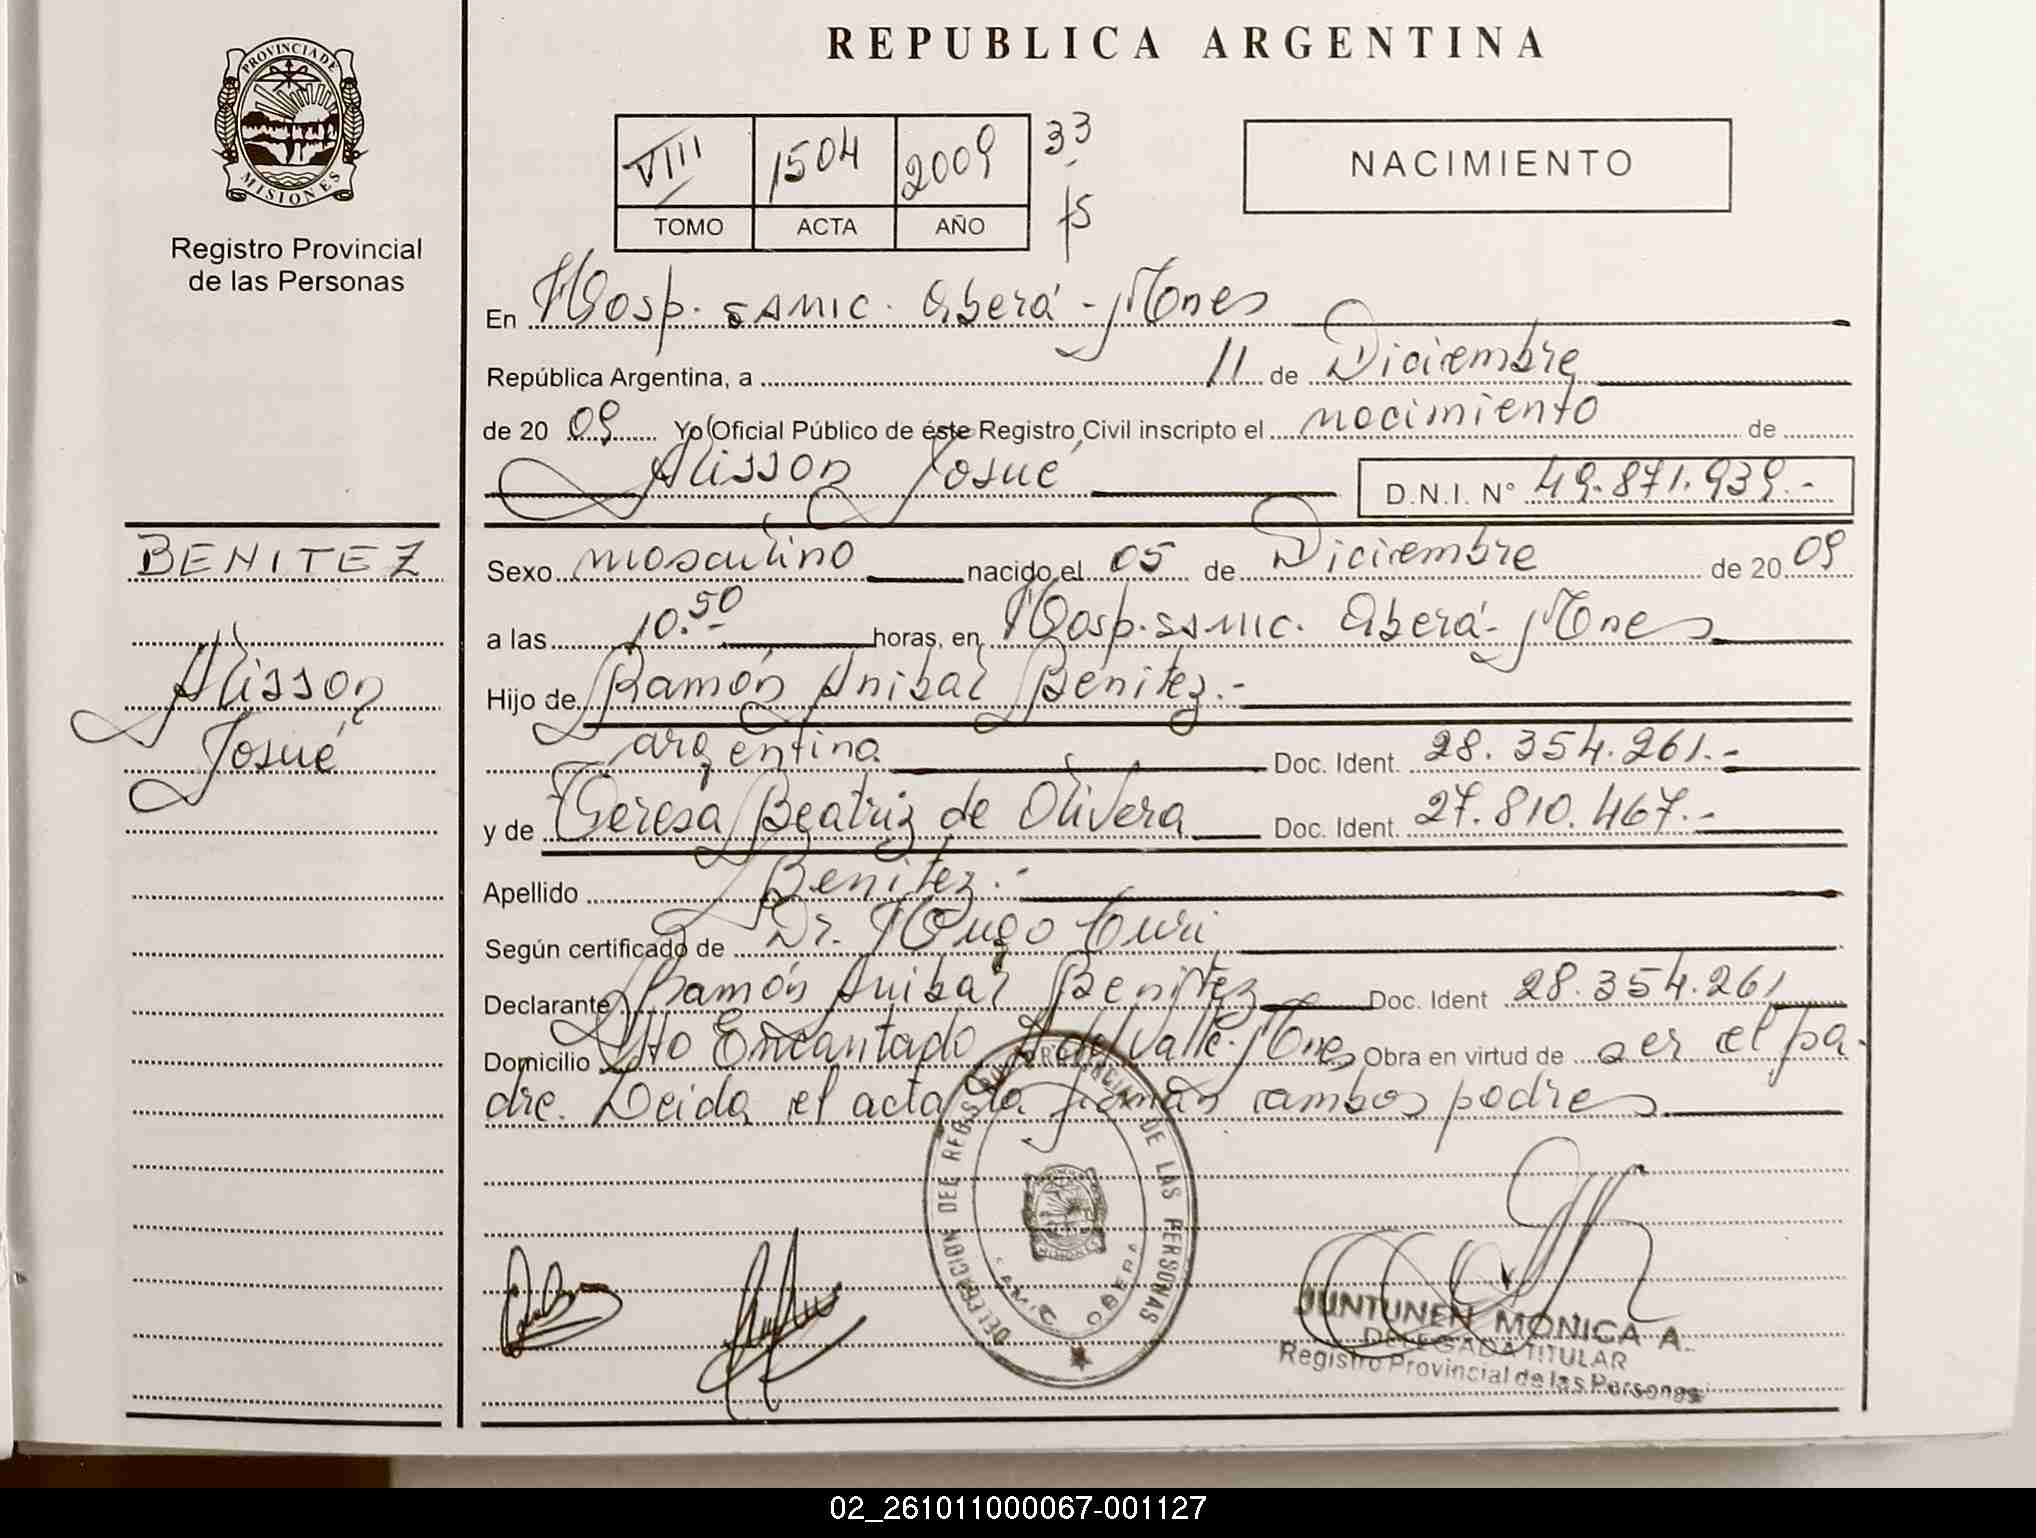 REPUBLICA ARGENTINA
PROVINCIA DE
MISIONES
Registro Provincial
de las Personas
VIII 1504 2009 33
TOMO ACTA AÑO 15
NACIMIENTO
En Hosp. SAMIC. Oberá - Mnes
República Argentina, a 11 de Diciembre
de 20 09 Yo Oficial Público de éste Registro Civil inscripto el nacimiento de
Alisson Josué D.N.I. Nº 49.871.939.-
BENITEZ
Alisson
Josué
Sexo masculino nacido el 05 de Diciembre de 20 09
a las 10.50 horas, en Hosp. SAMIC. Oberá - Mnes
Hijo de Ramón Anibal Benitez.-
argentina Doc. Ident. 28.354.261.-
y de Teresa Beatriz de Olivera Doc. Ident. 27.810.467.-
Apellido Benitez.-
Según certificado de Dr. Hugo Curi
Declarante Ramón Anibal Benitez Doc. Ident 28.354.261
Domicilio Sto Encantado A del Valle - Mnes Obra en virtud de ser el pa-
dre. Leida el acta la firman ambos padres
DELEGACION DEL REGISTRO PROVINCIAL DE LAS PERSONAS
SAMIC OBERA
MISIONES
JUNTUNEN MONICA A.
DELEGADA TITULAR
Registro Provincial de las Personas
02_261011000067-001127